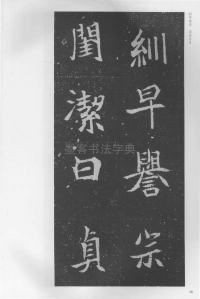 紃早譽宗
閨潔曰貞
墨客书法字典